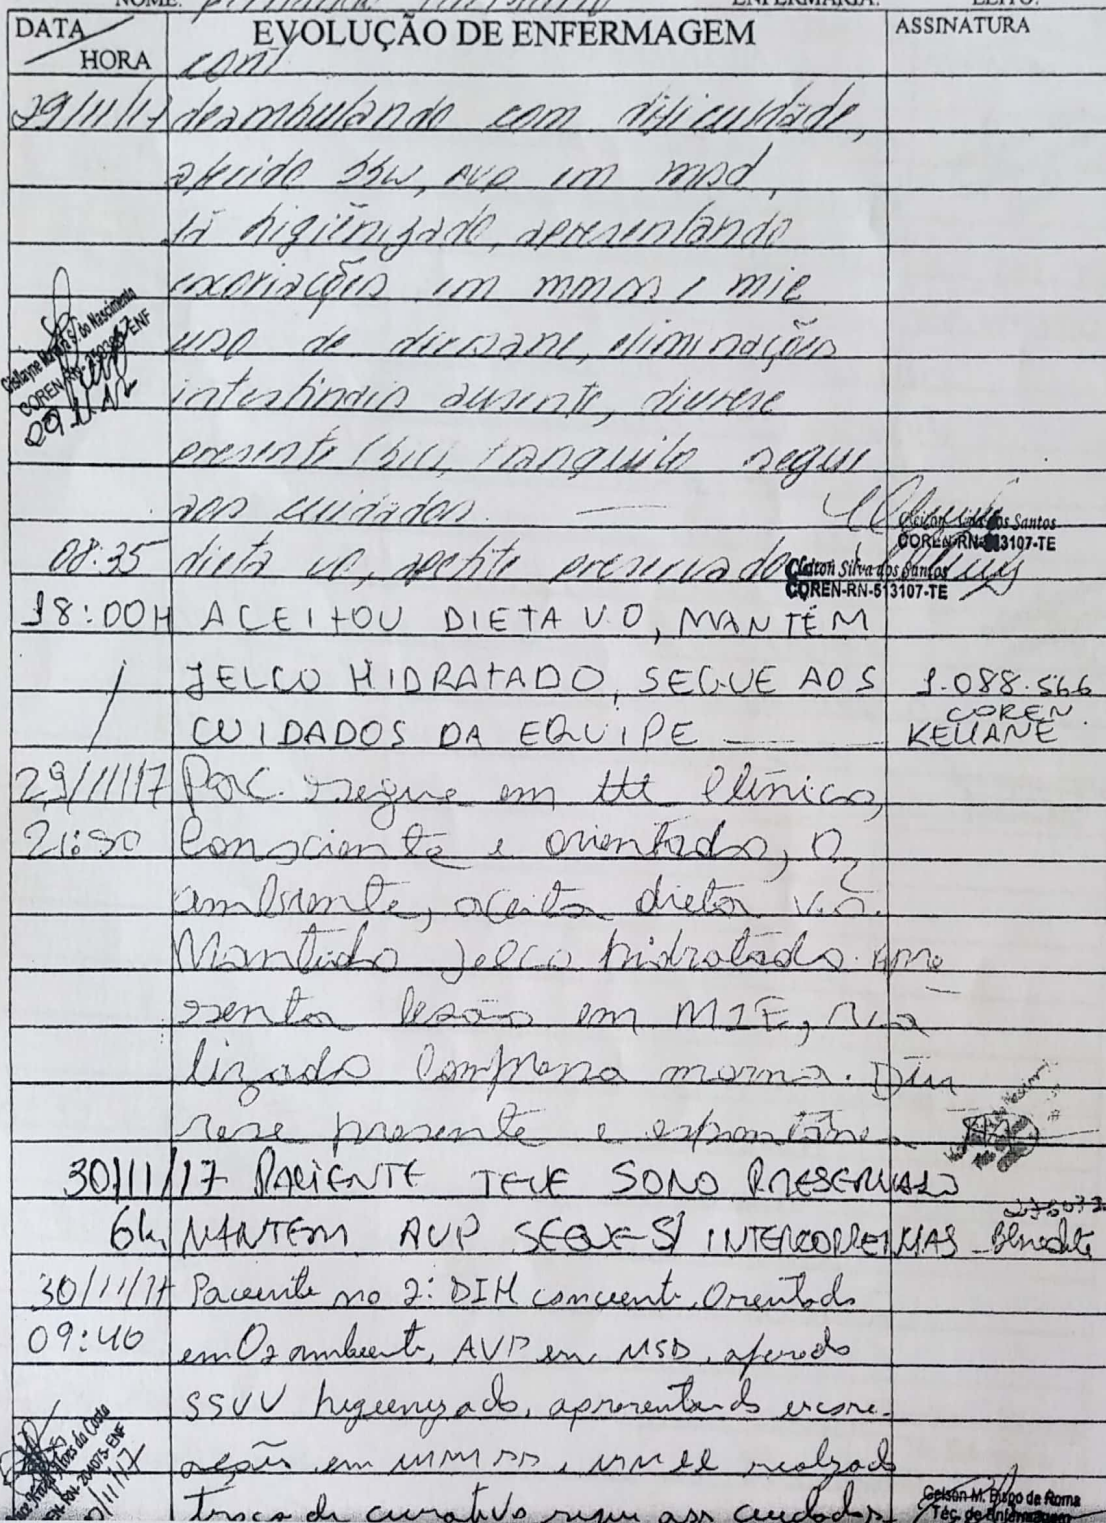 NOME: ENFERMARIA: LEITO:
DATA HORA EVOLUÇÃO DE ENFERMAGEM ASSINATURA
cont
29/11/17 deambulando com dificuldade,
aferido SSVV, AVP em msd,
já higiênizado, apresentando
excoriações em mmss e mie
uso de dersane, eliminações
intestinais ausente, diurese
presente (sic), tranquilo segue
aos cuidados.
Cleiton Silva dos Santos
COREN-RN-513107-TE
08:35 dieta vo, apetite preservado
Cleiton Silva dos Santos
COREN-RN-513107-TE
18:00H ACEITOU DIETA V.O, MANTÉM
JELCO HIDRATADO, SEGUE AOS 1.088.566
COREN
CUIDADOS DA EQUIPE KELIANE
29/11/17 Pac. segue em ttt clínico,
21:30 consciente e orientado, O2
ambiente, aceita dieta v.o.
Mantido jelco hidratado. Apre
senta lesão em MIE, rea
lizado compressa morna. Diu
rese presente e espontânea
30/11/17 PACIENTE TEVE SONO PRESERVADO
6h, MANTEM AVP SEGUE S/ INTERCORRENCIAS Benedita
30/11/17 Paciente no 2º DIH conciente, Orientado
09:40 em O2 ambiente, AVP em MSD, aferido
SSVV higienizado, apresentando escore-
ações em mmss e mmii realizado
troca de curativo segue aos cuidados
Gelson M. Bispo de Roma
Téc. de Enfermagem